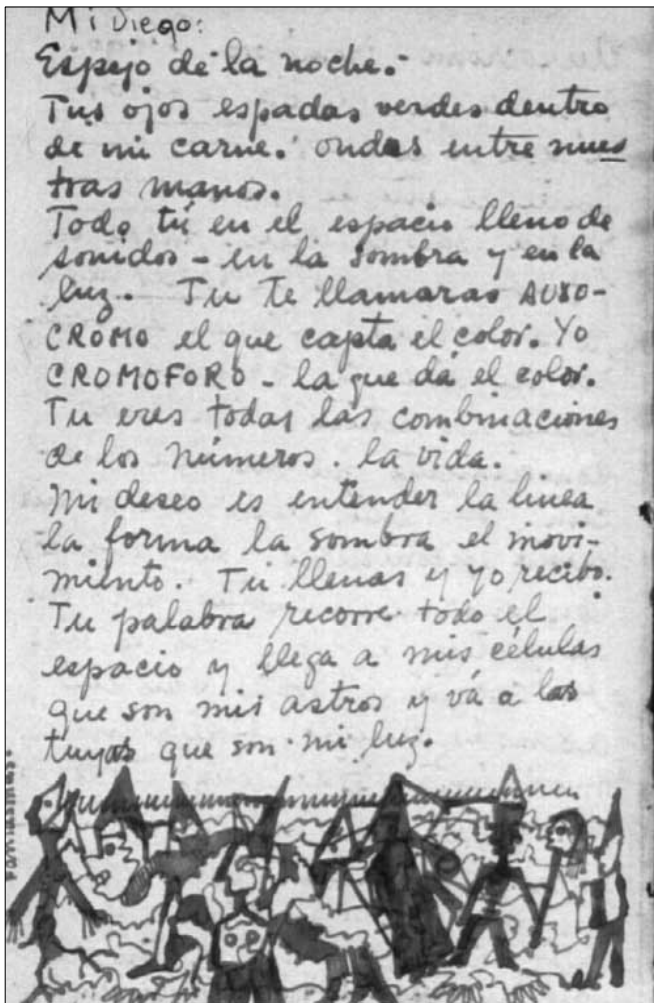 Mi Diego:
Espejo de la noche.
Tus ojos espadas verdes dentro
de mi carne. ondas entre nues
tras manos.
Todo tú en el espacio lleno de
sonidos - en la sombra y en la
luz. Tu te llamaras AUXO-
CROMO el que capta el color. Yo
CROMOFORO - la que dá el color.
Tu eres todas las combinaciones
de los números. la vida.
Mi deseo es entender la linea
la forma la sombra el movi-
miento. Tu llenas y yo recibo.
Tu palabra recorre todo el
espacio y llega a mis células
que son mis astros y vá a las
tuyas que son mi luz.